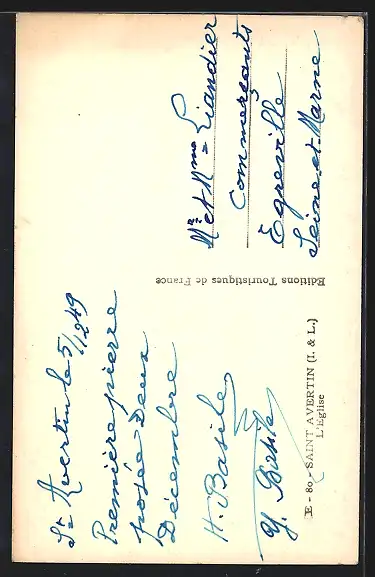 St Avertin le 5/12 49
Première pierre
posée Deux
Décembre
H. Basile
Y. Basile
E - 80 - SAINT AVERTIN (I. & L.)
L'Eglise
Editions Touristiques de France
Mr et Mme Liandier
Commerçants
Egreville
Seine et Marne